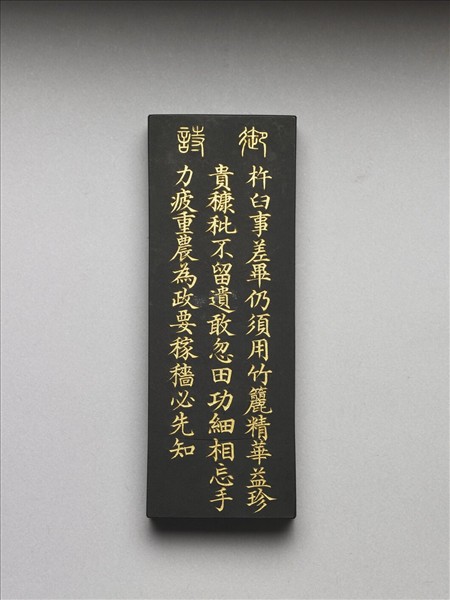 御詩
杵臼事差畢仍須用竹籭精華益珍
貴穅秕不留遺敢忽田功細相忘手
力疲重農為政要稼穡必先知